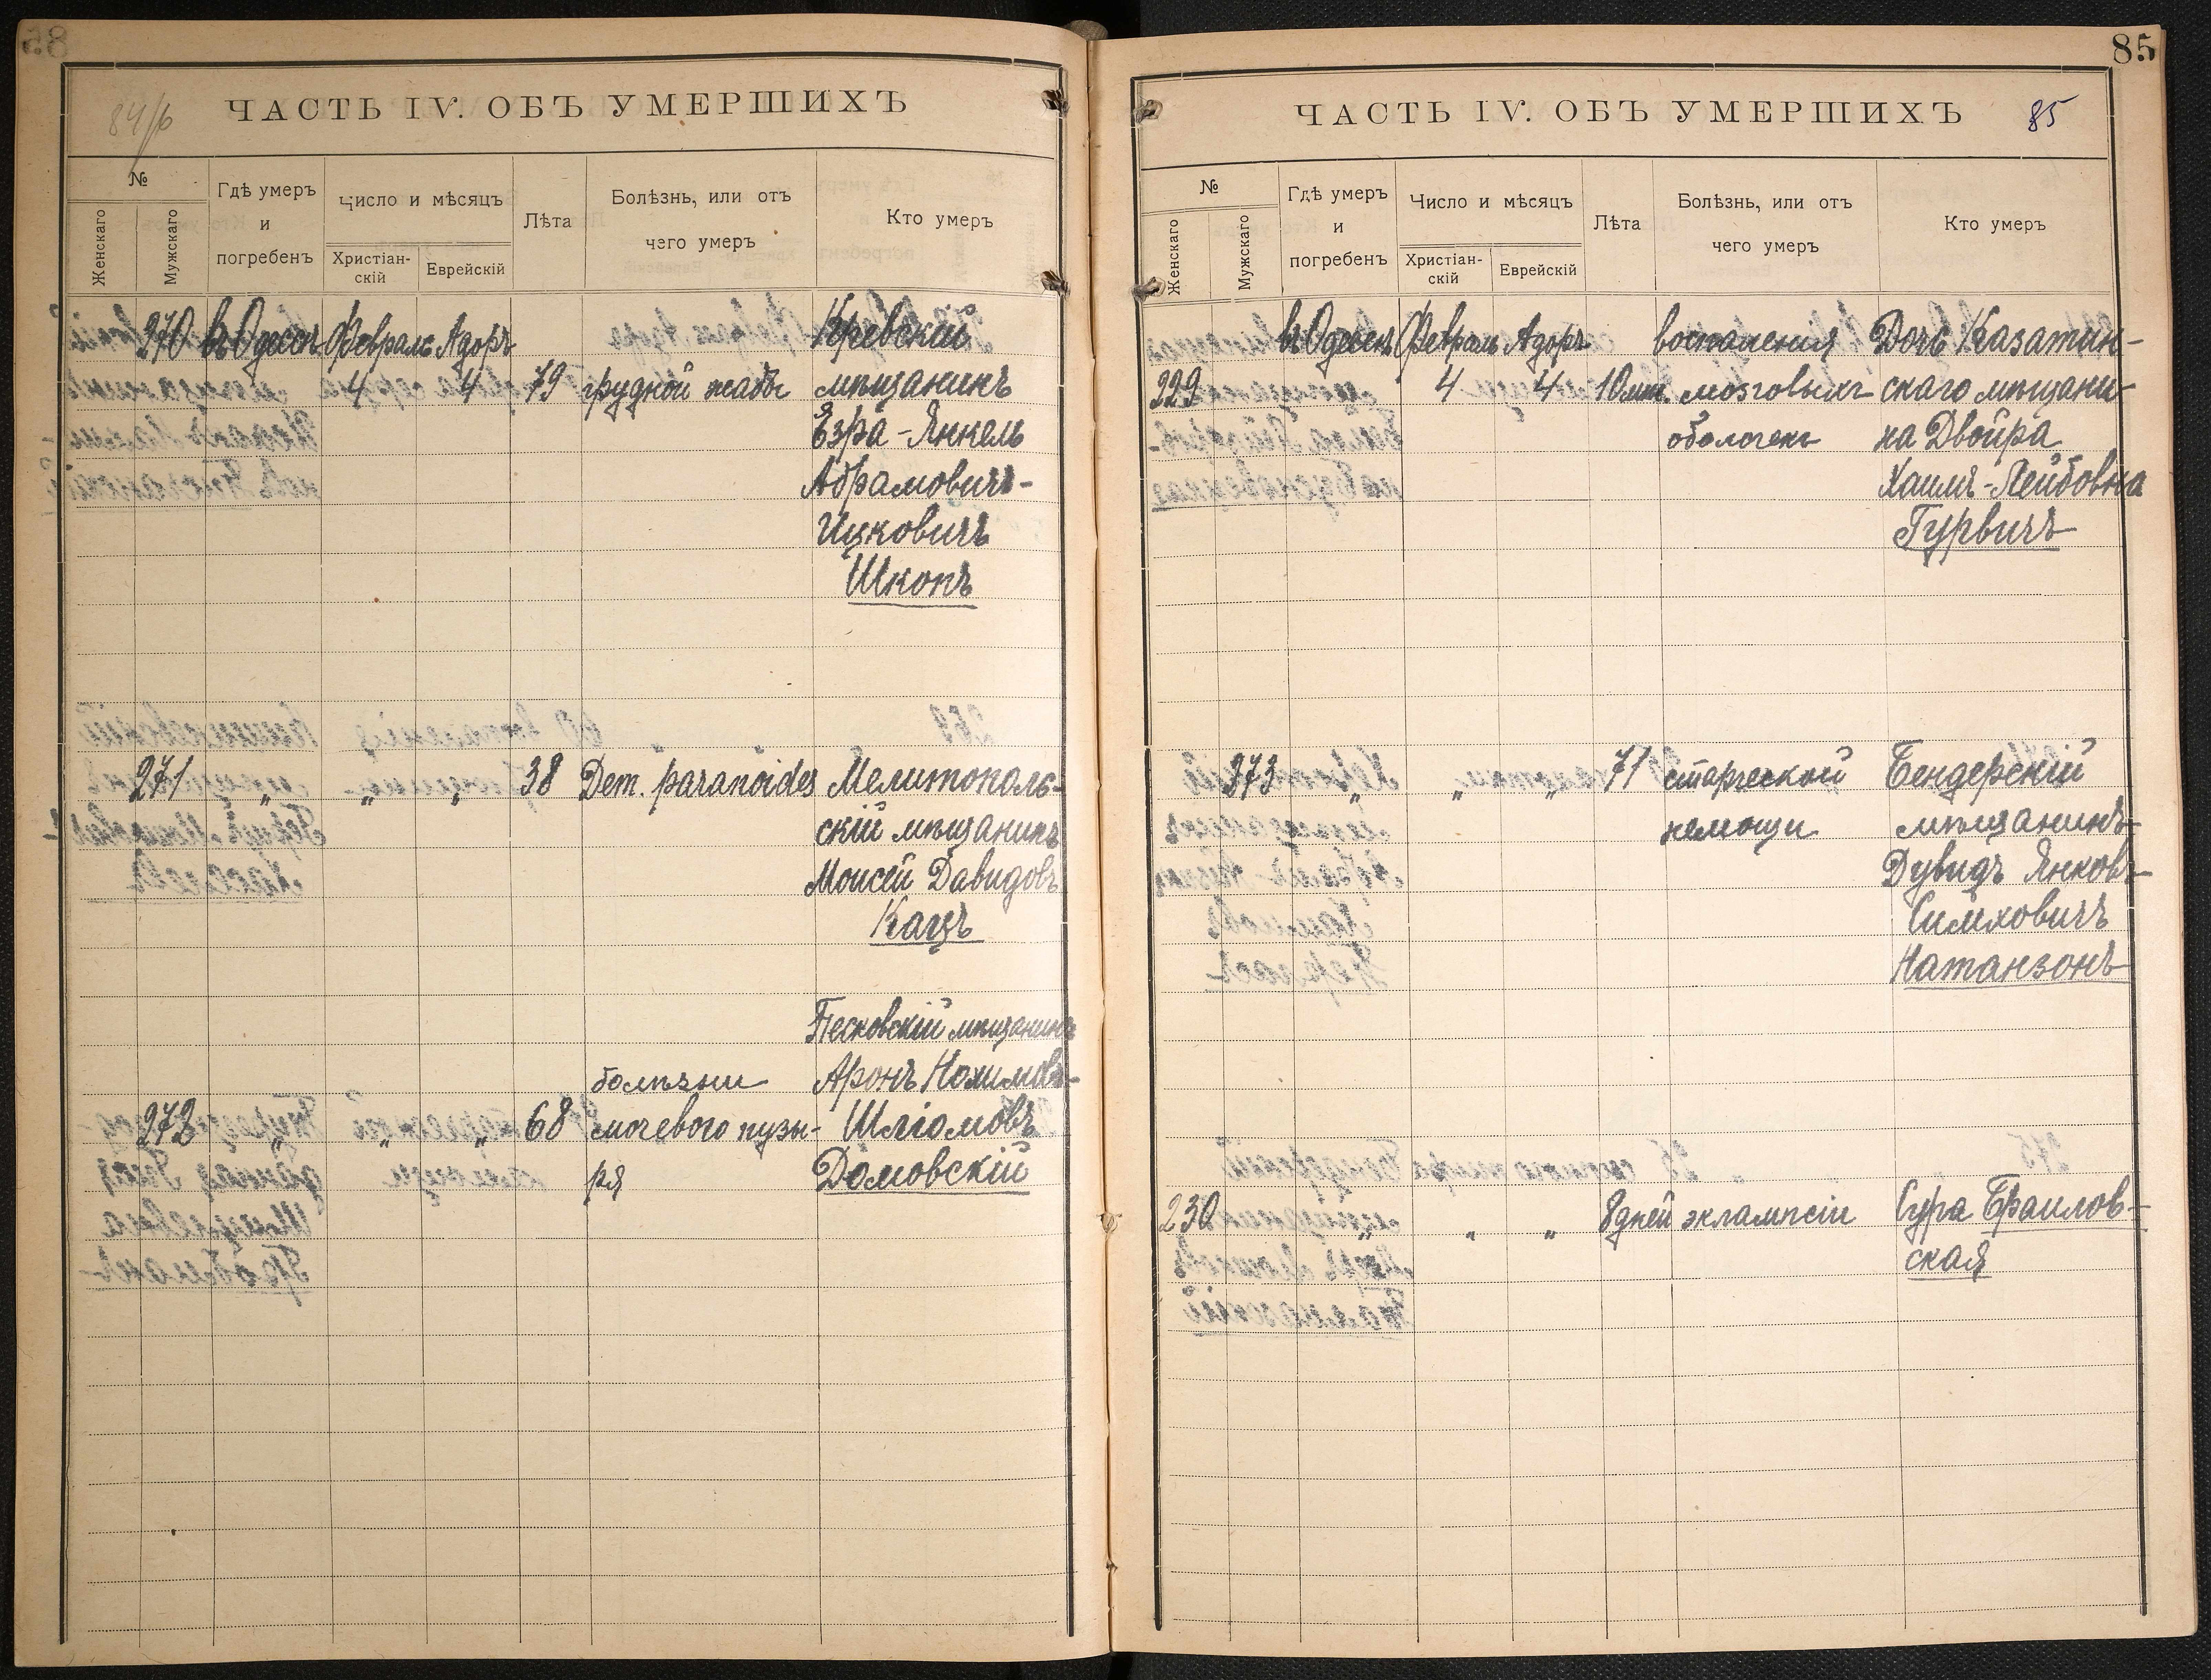 84/б
ЧАСТЬ IV. ОБЪ УМЕРШИХЪ
№
Женскаго
Мужскаго
Гдѣ умеръ
и
погребенъ
Число и мѣсяцъ
Христіан-
скій
Еврейскій
Лѣта
Болѣзнь, или отъ
чего умеръ
Кто умеръ
270 въ Одессѣ Февраль Адоръ Кревскій
4 4 79 грудной жабы мѣщанинъ
Эзра-Янкель
Абрамовичъ-
Ицковичъ
Шкопъ
271 „ „ „ 38 Dem. paranoides Мелитополь-
скій мѣщанинъ
Моисей Давидовъ
Кацъ
Песковскій мѣщанинъ
болѣзни Аронъ Нохимовъ-
272 „ „ „ 68 мочевого пузы- Шліомовъ
ря Домовскій
85
ЧАСТЬ IV. ОБЪ УМЕРШИХЪ
85
№
Женскаго
Мужскаго
Гдѣ умеръ
и
погребенъ
Число и мѣсяцъ
Христіан-
скій
Еврейскій
Лѣта
Болѣзнь, или отъ
чего умеръ
Кто умеръ
въ Одессѣ Февраль Адоръ воспаленія Дочь Казатин-
229 4 4 10 мѣс. мозговыхъ скаго мѣщани-
оболочекъ на Двойра
Хаимъ-Лейбовна
Гурвичъ
273 „ „ „ 71 старческой Бендерскій
немощи мѣщанинъ
Дувидъ Янковъ-
Симховичъ
Натанзонъ
230 „ „ „ 8 дней эклампсіи Сура Браилов-
ская